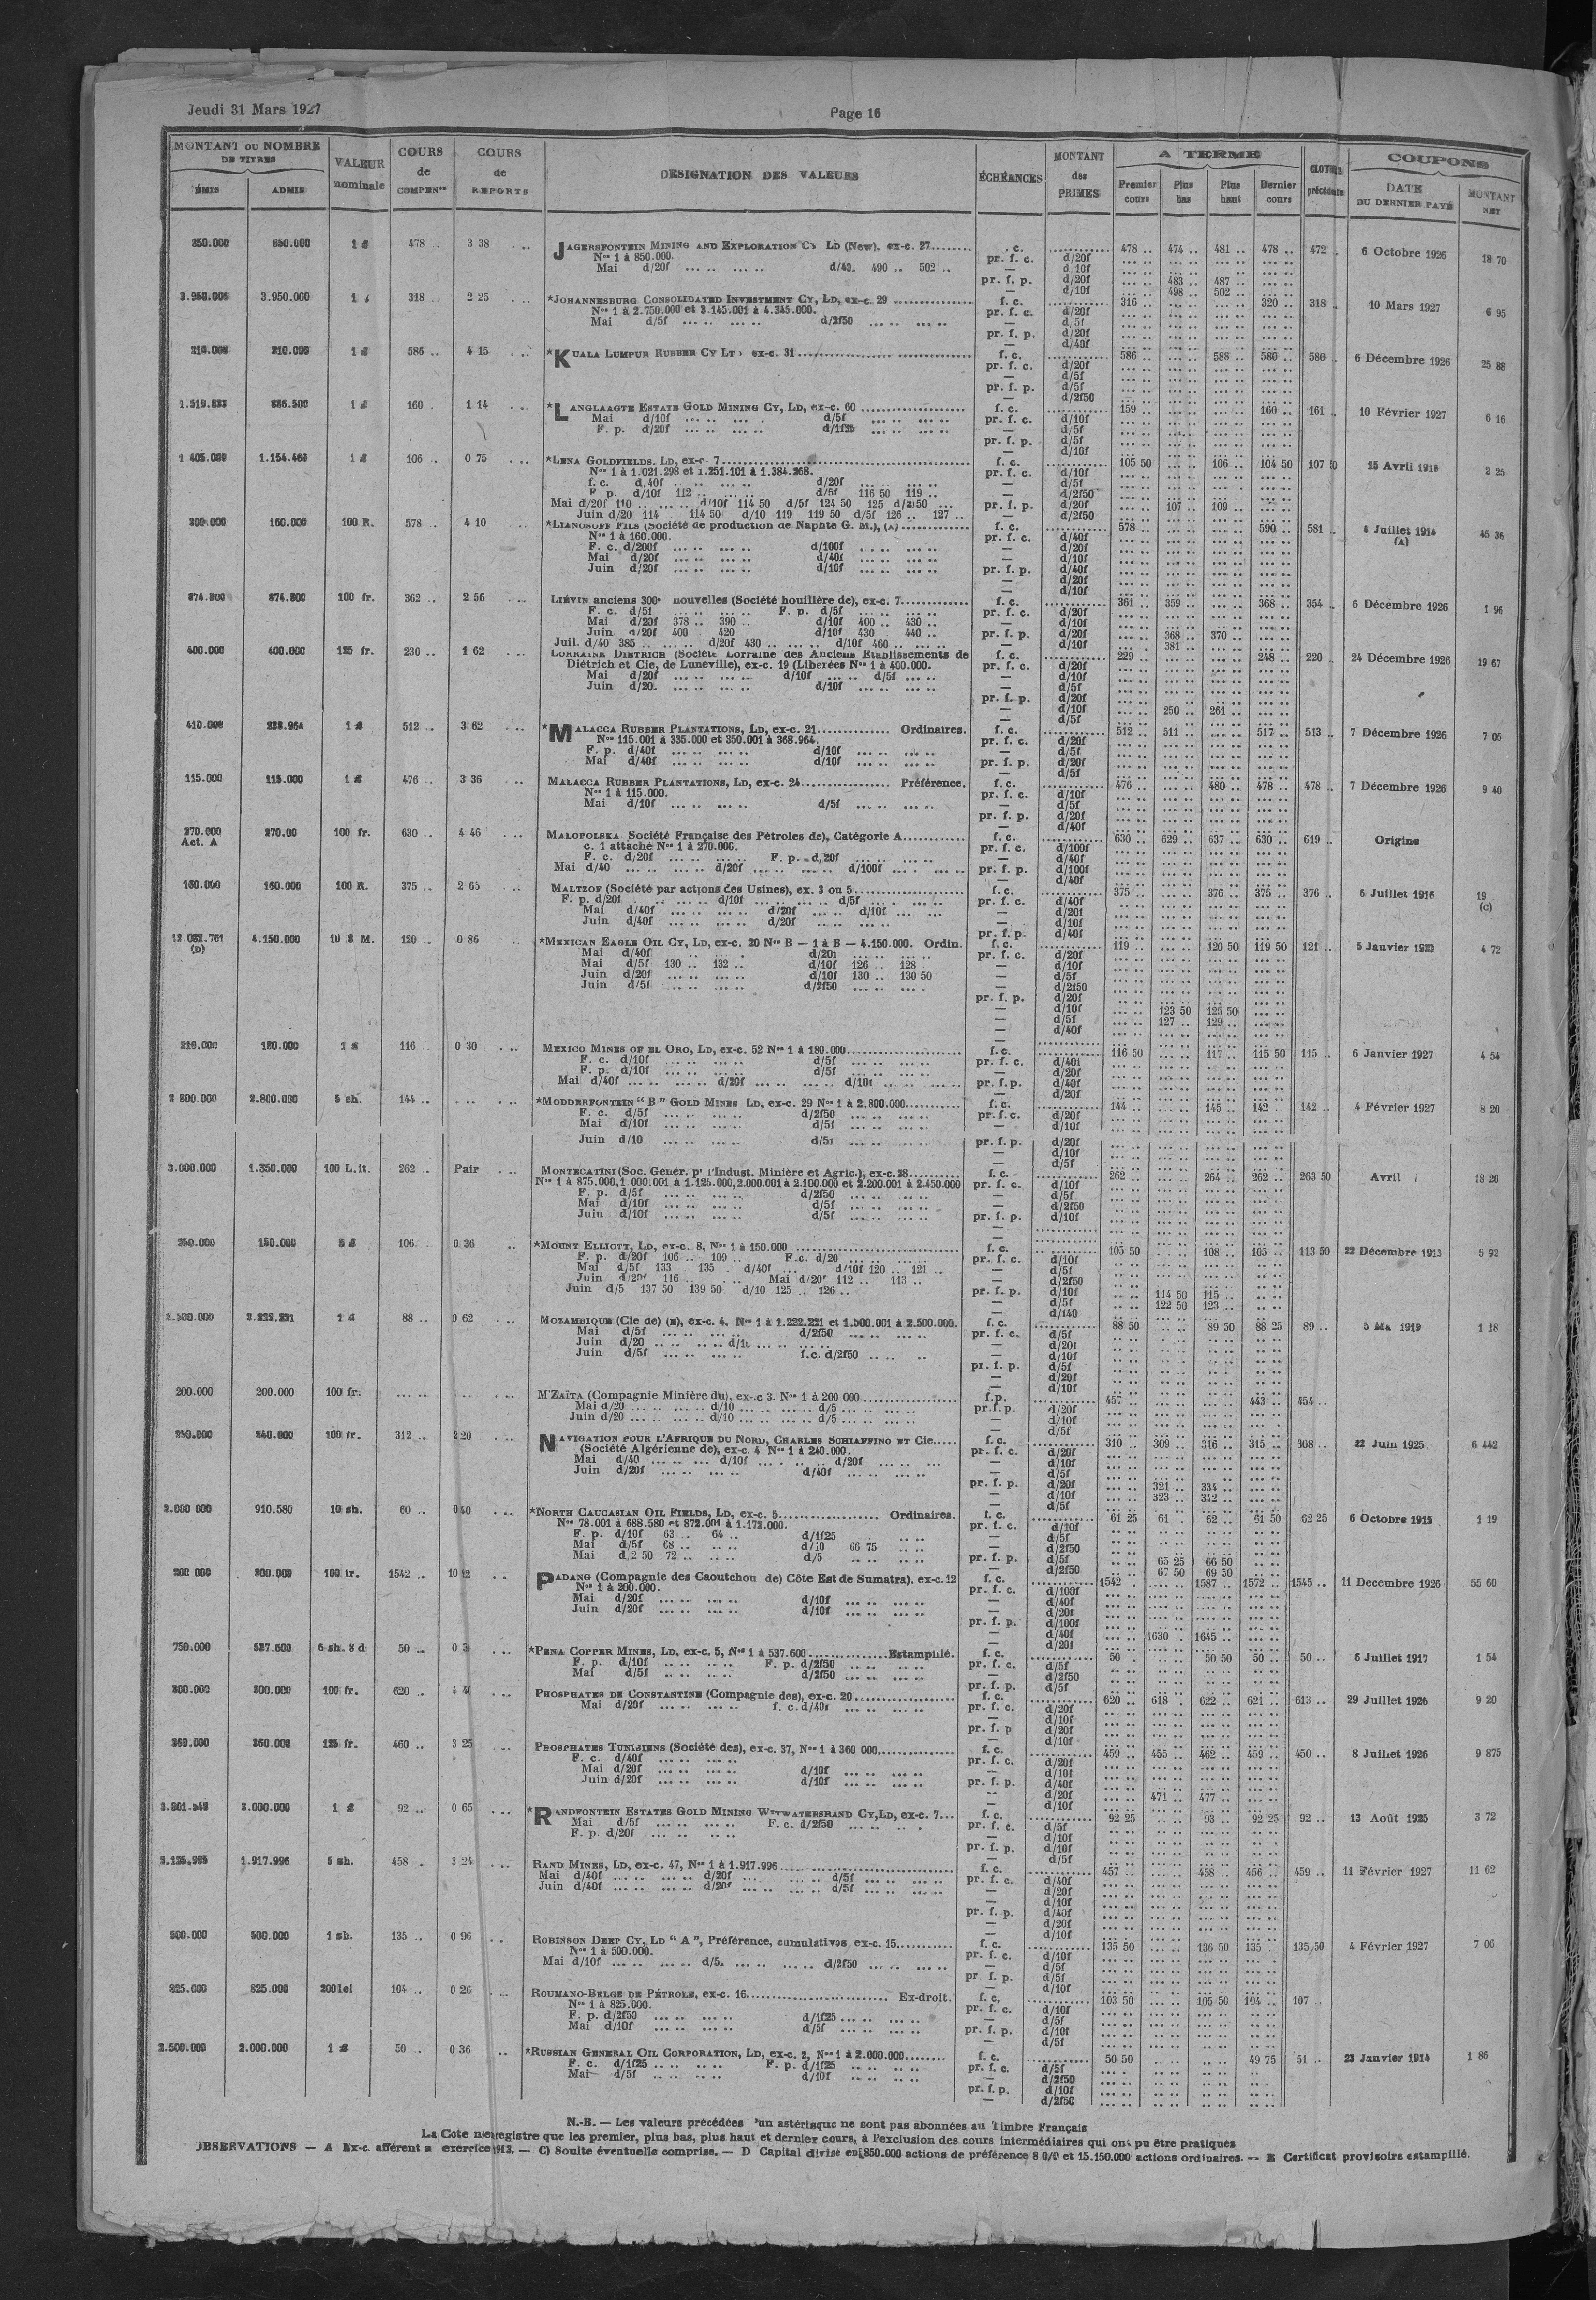 Jeudi 31 Mars 1927
Page 16
MONTANT OU NOMBRE DE TITRES
ÉMIS ADMIS
VALEUR nominale
COURS de COMPEN^on
COURS de REPORTS
DÉSIGNATION DES VALEURS
ÉCHÉANCES
MONTANT des PRIMES
A TERME
Premier cours Plus bas Plus haut Dernier cours
CLOTURE précédente
COUPONS
DATE DU DERNIER PAYÉ MONTANT NET
850.000 850.000 1 £ 478 .. 3 38 JAGERSFONTEIN MINING AND EXPLORATION Cy LD (New), ex-c. 27 f. c. 478 .. 474 .. 481 .. 478 .. 472 .. 6 Octobre 1926 18 70
Nos 1 à 850.000. pr. f. c. d/20f
Mai d/20f d/40. 490 .. 502 .. — d/10f
pr. f. p. d/20f 483 .. 487 ..
— d/10f 498 .. 502 ..
3.950.000 3.950.000 318 .. 2 25 *JOHANNESBURG CONSOLIDATED INVESTMENT CY, LD, ex-c. 29 f. c. 316 .. 320 .. 318 .. 10 Mars 1927 6 95
Nos 1 à 2.750.000 et 3.145.001 à 4.345.000. pr. f. c. d/20f
Mai d/5f d/2f50 — d/5f
pr. f. p. d/20f
— d/40f
210.000 210.000 1 £ 586 .. 4 15 *KUALA LUMPUR RUBBER CY LTD ex-c. 31 f. c. 586 .. 588 .. 580 .. 580 .. 6 Décembre 1926 25 88
pr. f. c. d/20f
— d/5f
pr. f. p. d/5f
— d/2f50
886.500 1 £ 160 . 1 14 *LANGLAAGTE ESTATE GOLD MINING CY, LD, ex-c. 60 f. c. 159 .. 160 .. 161 .. 10 Février 1927 6 16
Mai d/10f d/5f pr. f. c. d/10f
F. p. d/20f d/1f25 — d/5f
pr. f. p. d/5f
— d/10f
1 405.000 1.154.468 1 £ 106 .. 0 75 *LENA GOLDFIELDS, LD, ex-c 7 f. c. 105 50 106 .. 104 50 107 50 15 Avril 1916 2 25
Nos 1 à 1.021.298 et 1.251.101 à 1.384.268. pr. f. c. d/10f
f. c. d/40f d/20f — d/5f
F p. d/10f 112 .. d/5f 116 50 119 .. — d/2f50
Mai d/20f 110 .. d/10f 114 50 d/5f 124 50 125 d/2f50 pr. f. p. d/20f 107 .. 109 ..
Juin d/20 114 114 50 d/10 119 119 50 d/5f 126 .. 127 .. — d/2f50
300.000 160.000 100 R. 578 .. 4 10 *LIANOSOFF FILS (Société de production de Naphte G. M.), (A) f. c. 578 .. 590 .. 581 .. 4 Juillet 1914 (A) 45 36
Nos 1 à 160.000. pr. f. c. d/40f
F. c. d/200f d/100f — d/20f
Mai d/20f d/40f — d/10f
Juin d/20f d/10f pr. f. p. d/40f
— d/20f
— d/10f
874.800 874.800 100 fr. 362 .. 2 56 LIÉVIN anciens 300e nouvelles (Société houillère de), ex-c. 7 f. c. 361 .. 359 .. 368 .. 354 .. 6 Décembre 1926 1 96
F. c. d/5f F. p. d/5f pr. f. c. d/20f
Mai d/20f 378 .. 390 .. d/10f 400 .. 430 .. — d/10f
Juin d/20f 400 420 d/10f 430 440 .. pr. f. p. d/20f 368 .. 370 ..
Juil. d/40 385 .. d/20f 430 .. d/10f 460 .. — d/10f 381 ..
400.000 400.000 125 fr. 230 .. 1 62 LORRAINE DIETRICH (Société Lorraine des Anciens Etablissements de f. c. 229 .. 248 .. 220 .. 24 Décembre 1926 19 67
Diétrich et Cie, de Lunéville), ex-c. 19 (Libérées Nos 1 à 400.000. pr. f. c. d/20f
Mai d/20f d/10f d/5f — d/10f
Juin d/20. d/10f — d/5f
pr. f. p. d/20f
— d/10f 250 .. 261 ..
— d/5f
410.000 238.964 1 £ 512 .. 3 62 *MALACCA RUBBER PLANTATIONS, LD, ex-c. 21 Ordinaires. f. c. 512 .. 511 .. 517 .. 513 .. 7 Décembre 1926 7 05
Nos 115.001 à 335.000 et 350.001 à 368.964. pr. f. c. d/20f
F. p. d/40f d/10f — d/5f
Mai d/40f d/10f pr. f. p. d/20f
— d/5f
115.000 115.000 1 £ 476 .. 3 36 MALACCA RUBBER PLANTATIONS, LD, ex-c. 24 Préférence. f. c. 476 .. 480 .. 478 .. 478 .. 7 Décembre 1926 9 40
Nos 1 à 115.000. pr. f. c. d/10f
Mai d/10f d/5f — d/5f
pr. f. p. d/20f
— d/40f
270.000 Act. A 270.00 100 fr. 630 .. 4 46 MALOPOLSKA Société Française des Pétroles de), Catégorie A f. c. 630 .. 629 .. 637 .. 630 .. 619 .. Origine
c. 1 attaché Nos 1 à 270.000. pr. f. c. d/100f
F. c. d/20f F. p. d/20f — d/40f
Mai d/40 d/20f d/100f pr. f. p. d/100f
— d/40f
160.000 160.000 100 R. 375 .. 2 65 MALTZOF (Société par actions des Usines), ex. 3 ou 5 f. c. 375 .. 376 .. 375 .. 376 .. 6 Juillet 1916 19 (C)
F. p. d/20f d/10f d/5f pr. f. c. d/40f
Mai d/40f d/20f d/10f — d/20f
Juin d/40f d/20f — d/10f
pr. f. p. d/40f
12.083.761 (D) 4.150.000 10 $ M. 120 . 0 86 *MEXICAN EAGLE OIL CY, LD, ex-c. 20 Nos B — 1 à B — 4.150.000. Ordin. f. c. 119 .. 120 50 119 50 121 .. 5 Janvier 1923 4 72
Mai d/40f d/20f pr. f. c. d/20f
Mai d/5f 130 .. 132 .. d/10f 126 .. 128 . — d/10f
Juin d/20f d/10f 130 .. 130 50 — d/5f
Juin d/5f d/2f50 — d/2f50
pr. f. p. d/20f
— d/10f 123 50 125 50
— d/5f 127 .. 129 ..
— d/40f
210.000 180.000 1 £ 116 0 30 MEXICO MINES OF EL ORO, LD, ex-c. 52 Nos 1 à 180.000 f. c. 116 50 117 .. 115 50 115 .. 6 Janvier 1927 4 54
F. c. d/10f d/5f pr. f. c. d/40f
F. p. d/10f d/5f — d/20f
Mai d/40f d/20f d/10f pr. f. p. d/40f
— d/20f
2 800.000 2.800.000 5 sh. 144 .. *MODDERFONTEIN "B" GOLD MINES LD, ex-c. 29 Nos 1 à 2.800.000 f. c. 144 .. 145 .. 142 .. 142 .. 4 Février 1927 8 20
F. c. d/5f d/2f50 pr. f. c. d/20f
Mai d/10f d/5f — d/10f
Juin d/10 d/5f pr. f. p. d/20f
— d/10f
— d/5f
3.000.000 1.350.000 100 L.it. 262 .. Pair MONTECATINI (Soc. Génér. pr l'Indust. Minière et Agric.), ex-c. 28 f. c. 262 .. 264 .. 262 .. 263 50 Avril 18 20
Nos 1 à 875.000, 1 000.001 à 1.125.000, 2.000.001 à 2.100.000 et 2.200.001 à 2.450.000 pr. f. c. d/10f
F. p. d/5f d/2f50 — d/5f
Mai d/10f d/5f — d/2f50
Juin d/10f d/5f pr. f. p. d/10f
250.000 150.000 5 £ 106 0 36 *MOUNT ELLIOTT, LD, ex-c. 8, Nos 1 à 150.000 f. c. 105 50 108 .. 105 .. 113 50 22 Décembre 1913 5 92
F. p. d/20f 106 .. 109 .. F.c. d/20 pr. f. c. d/10f
Mai d/5f 133 135 . d/40f d/10f 120 .. 121 .. — d/5f
Juin d/20f 116 .. Mai d/20f 112 .. 113 .. — d/2f50
Juin d/5 137 50 139 50 d/10 125 .. 126 .. pr. f. p. d/10f 114 50 115 ..
— d/5f 122 50 123 ..
— d/f40
2.500.000 2.222.221 1 £ 88 .. 0 62 MOZAMBIQUE (Cie de) (E), ex-c. 4. Nos 1 à 1.222.221 et 1.500.001 à 2.500.000. f. c. 88 50 89 50 88 25 89 .. 5 Ma 1919 1 18
Mai d/5f d/2f50 pr. f. c. d/5f
Juin d/20 — d/20f
Juin d/5f f.c. d/2f50 — d/10f
pr. f. p. d/5f
— d/20f
— d/10f
200.000 200.000 100 fr. M'ZAÏTA (Compagnie Minière du), ex-c 3. Nos 1 à 200 000 f.p. 457 443 .. 454 ..
Mai d/20 d/10 d/5 pr.f.p. d/20f
Juin d/20 d/10 d/5 — d/10f
— d/5f
250.000 240.000 100 fr. 312 .. 2 20 NAVIGATION POUR L'AFRIQUE DU NORD, CHARLES SCHIAFFINO ET Cie f. c. 310 .. 309 .. 316 .. 315 .. 308 .. 22 Juin 1925 6 442
(Société Algérienne de), ex-c. 4 Nos 1 à 240.000. pr. f. c. d/20f
Mai d/40 d/10f d/20f — d/10f
Juin d/20f d/40f — d/5f
pr. f. p. d/20f 321 .. 334 ..
— d/10f 323 .. 342 ..
— d/5f
2.000 000 910.580 10 sh. 60 .. 0 40 *NORTH CAUCASIAN OIL FIELDS, LD, ex-c. 5 Ordinaires. f. c. 61 25 61 . 62 .. 61 50 62 25 6 Octobre 1915 1 19
Nos 78.001 à 688.580 et 872.001 à 1.172.000. pr. f. c. d/10f
F. p. d/10f 63 .. 64 .. d/1f25 — d/5f
Mai d/5f 68 .. d/10 66 75 — d/2f50
Mai d/2 50 72 .. d/5 pr. f. p. d/5f 65 25 66 50
— d/2f50 67 50 69 50
200 000 200.000 100 fr. 1542 .. 10 12 PADANG (Compagnie des Caoutchou de) Côte Est de Sumatra). ex-c. 12 f. c. 1542 . 1587 .. 1572 .. 1545 .. 11 Decembre 1926 55 60
Nos 1 à 200.000. pr. f. c. d/100f
Mai d/20f d/10f — d/40f
Juin d/20f d/10f — d/20f
pr. f. p. d/100f
— d/40f 1630 . 1645 ..
— d/20f
750.000 537.600 6 sh. 8 d 50 .. 0 3 *PENA COPPER MINES, LD, ex-c. 5, Nos 1 à 537.600 Estampillé. f. c. 50 . 50 50 50 .. 50 .. 6 Juillet 1917 1 54
F. p. d/10f F. p. d/2f50 pr. f. c. d/5f
Mai d/5f d/2f50 — d/2f50
pr. f. p. d/5f
300.000 300.000 100 fr. 620 .. 4 40 PHOSPHATES DE CONSTANTINE (Compagnie des), ex-c. 20 f. c. 620 .. 618 .. 622 .. 621 .. 613 .. 29 Juillet 1926 9 20
Mai d/20f f. c. d/40f pr. f. c. d/20f
— d/10f
pr. f. p d/20f
— d/10f
360.000 360.000 125 fr. 460 .. 3 25 PHOSPHATES TUNISIENS (Société des), ex-c. 37, Nos 1 à 360 000 f. c. 459 .. 455 .. 462 .. 459 .. 450 .. 8 Juillet 1926 9 875
F. c. d/40f pr. f. c. d/20f
Mai d/20f d/10f — d/10f
Juin d/20f d/10f pr. f. p. d/40f
— d/20f 471 .. 477 ..
— d/10f
3.000.000 1 £ 92 .. 0 65 *RANDFONTEIN ESTATES GOLD MINING WITWATERSRAND CY, LD, ex-c. 7 f. c. 92 25 93 .. 92 25 92 .. 13 Août 1925 3 72
Mai d/5f F. c. d/2f50 pr. f. c. d/5f
F. p. d/20f — d/10f
pr. f. p. d/10f
— d/5f
2.125.995 1.917.996 5 sh. 458 . 3 24 RAND MINES, LD, ex-c. 47, Nos 1 à 1.917.996 f. c. 457 458 .. 456 .. 459 .. 11 Février 1927 11 62
Mai d/40f d/20f d/5f pr. f. c. d/40f
Juin d/40f d/20f d/5f — d/20f
— d/10f
pr. f. p. d/40f
— d/20f
— d/10f
500.000 500.000 1 sh. 135 .. 0 96 ROBINSON DEEP CY, LD "A", Préférence, cumulatives ex-c. 15 f. c. 135 50 136 50 135 135 50 4 Février 1927 7 06
Nos 1 à 500.000. pr. f. c. d/10f
Mai d/10f d/5. d/2f50 — d/5f
pr f. p. d/5f
— d/10f
825.000 825.000 200 lei 104 .. 0 26 ROUMANO-BELGE DE PÉTROLE, ex-c. 16 Ex-droit. f. c. 103 50 105 50 104 .. 107 ..
Nos 1 à 825.000. pr. f. c. d/10f
F. p. d/2f50 d/1f25 — d/5f
Mai d/10f d/5f pr. f. p. d/10f
— d/5f
2.500.000 2.000.000 1 £ 50 .. 0 36 *RUSSIAN GENERAL OIL CORPORATION, LD, ex-c. 2, Nos 1 à 2.000.000 f. c. 50 50 49 75 51 .. 23 Janvier 1914 1 86
F. c. d/1f25 F. p. d/1f25 pr. f. c. d/5f
Mai d/5f d/10f — d/2f50
pr. f. p. d/10f
— d/2f50
N.-B. — Les valeurs précédées 'un astérisque ne sont pas abonnées au Timbre Français
La Cote n'enregistre que les premier, plus bas, plus haut et dernier cours, à l'exclusion des cours intermédiaires qui ont pu être pratiqués
OBSERVATIONS — A Ex-c. afférent a exercice 1913. — C) Soulte éventuelle comprise. — D Capital divisé en 850.000 actions de préférence 8 0/0 et 15.150.000 actions ordinaires. — E Certificat provisoire estampillé.